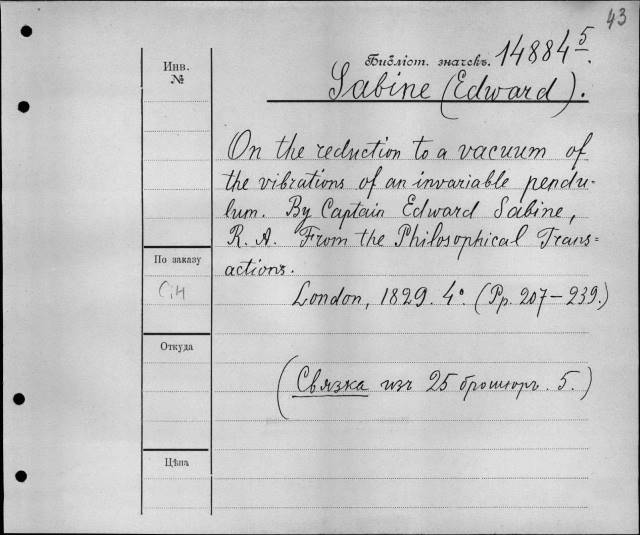 43
Инв.
№
Библіот. значекъ. 14884 5.
Sabine (Edward).
On the reduction to a vacuum of
the vibrations of an invariable pendu-
lum. By Captain Edward Sabine,
R. A. From the Philosophical Trans=
actions.
По заказу
London, 1829. 4°. (Pp. 207–239.)
Откуда
(Связка изъ 25 брошюръ. 5.)
Цѣна